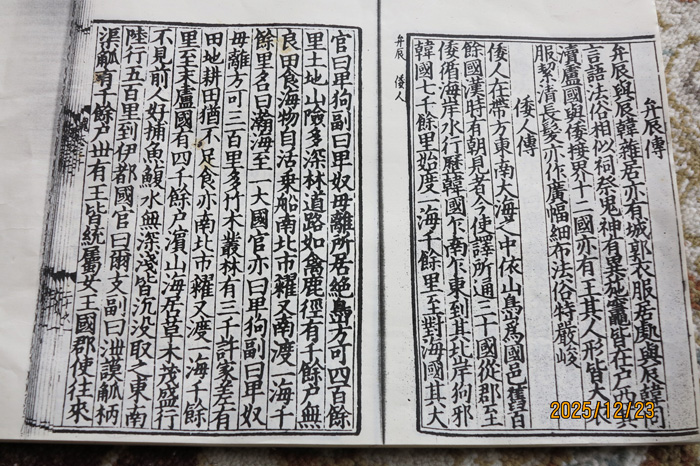 弁辰傳
弁辰與辰韓雜居亦有城郭衣服居處與辰韓同
言語法俗相似祠祭鬼神有異施竈皆在戶西其
瀆盧國與倭接界十二國亦有王其人形皆大衣
服絜清長髮亦作廣幅細布法俗特嚴峻
倭人傳
倭人在帶方東南大海之中依山島為國邑舊百
餘國漢時有朝見者今使譯所通三十國從郡至
倭循海岸水行歷韓國乍南乍東到其北岸狗邪
韓國七千餘里始度一海千餘里至對海國其大
弁辰 倭人
官曰卑狗副曰卑奴母離所居絶島方可四百餘
里土地山險多深林道路如禽鹿徑有千餘戶無
良田食海物自活乗船南北市糴又南渡一海千
餘里名曰瀚海至一大國官亦曰卑狗副曰卑奴
母離方可三百里多竹木叢林有三千許家差有
田地耕田猶不足食亦南北市糴又渡一海千餘
里至末盧國有四千餘戶濱山海居草木茂盛行
不見前人好捕魚鰒水無深淺皆沉沒取之東南
陸行五百里到伊都國官曰爾支副曰泄謨觚柄
渠觚有千餘戶丗有王皆統屬女王國郡使往來
2025/12/23